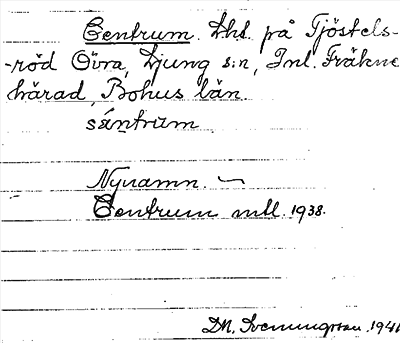 Centrum. Lht. på Tjöstels-
-röd Övra, Ljung s:n, Inl. Fräkne
härad, Bohus län.
sántrum
Nynamn. –
Centrum mtl. 1938.
DM. Sveningsson. 1941